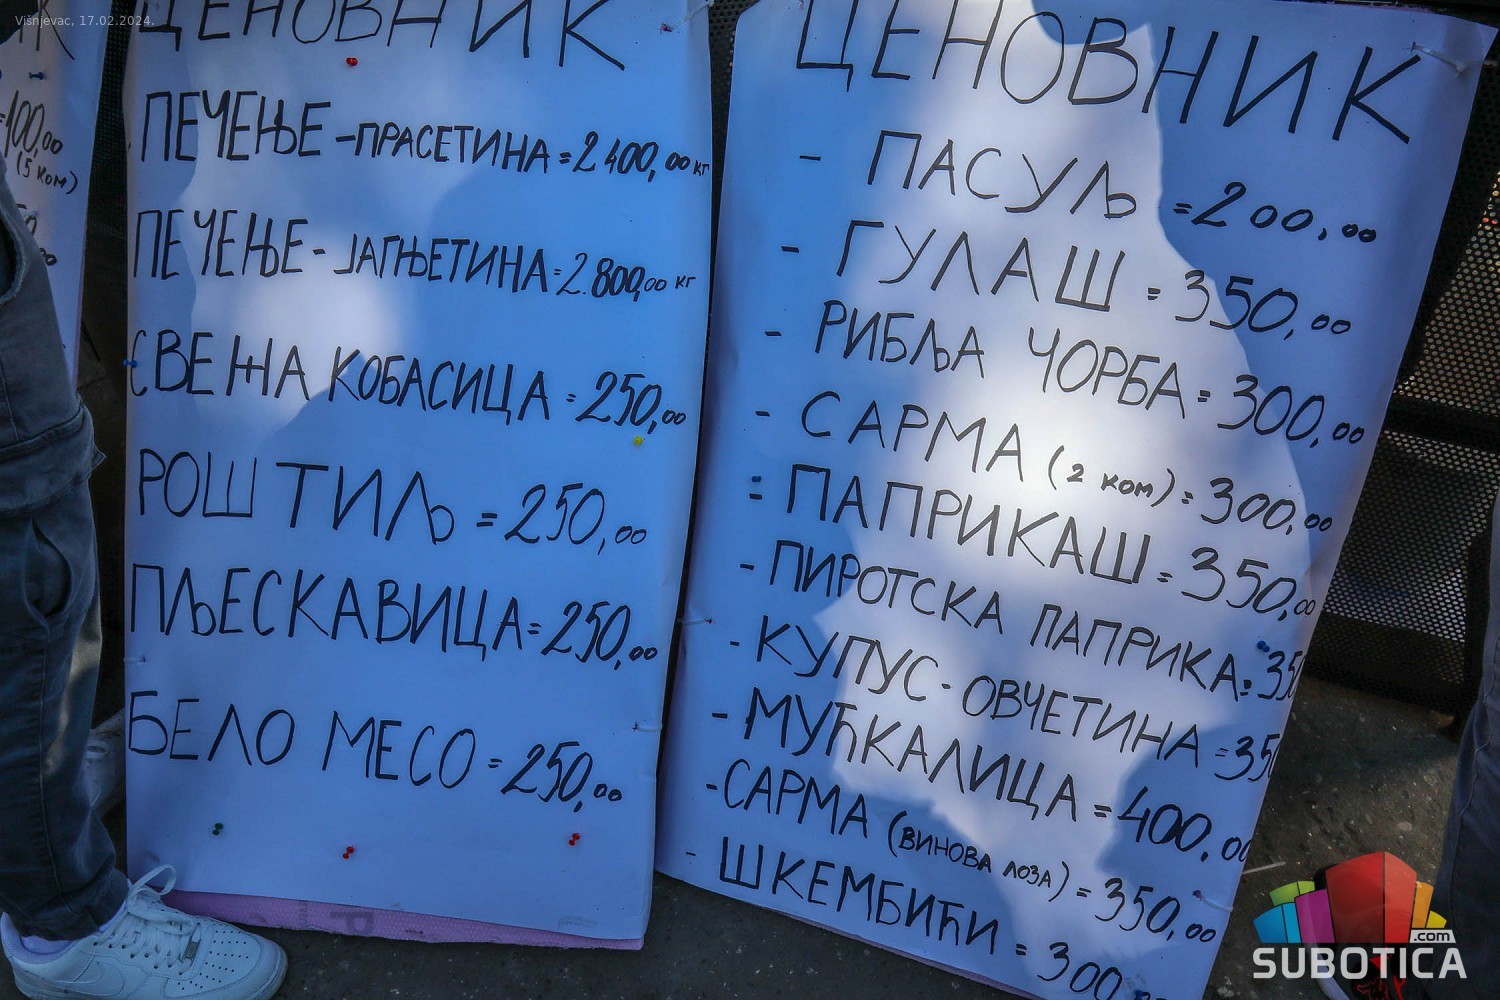 Višnjevac, 17.02.2024.
100,00
(5 ком)
ЦЕНОВНИК
ПЕЧЕЊЕ - ПРАСЕТИНА = 2400,00 кг
ПЕЧЕЊЕ - ЈАГЊЕТИНА = 2.800,00 кг
СВЕЖА КОБАСИЦА = 250,00
РОШТИЉ = 250,00
ПЉЕСКАВИЦА = 250,00
БЕЛО МЕСО = 250,00
ЦЕНОВНИК
- ПАСУЉ = 200,00
- ГУЛАШ = 350,00
- РИБЉА ЧОРБА = 300,00
- САРМА (2 ком) = 300,00
- ПАПРИКАШ = 350,00
- ПИРОТСКА ПАПРИКА = 350
- КУПУС - ОВЧЕТИНА = 350
- МУЋКАЛИЦА = 400,00
- САРМА (ВИНОВА ЛОЗА) = 350,00
- ШКЕМБИЋИ = 300
SUBOTICA.com